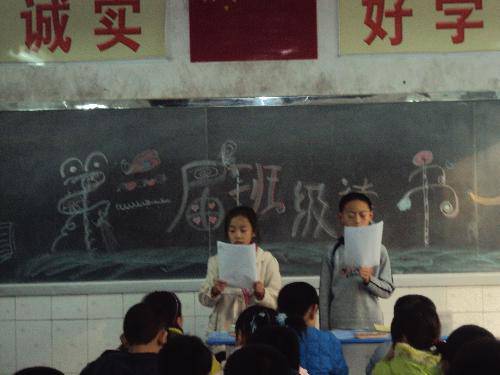 诚实
好学
第一届班级读书